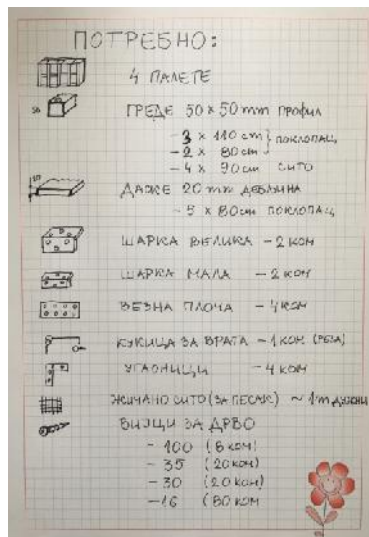 ПОТРЕБНО:
4 ПАЛЕТЕ
50
ГРЕДЕ 50×50 mm ПРОФИЛ
- 3 × 110 cm } ПОКЛОПАЦ
- 2 × 80 cm
- 4 × 90 cm СИТО
ДАСКЕ 20 mm ДЕБЉИНА
- 5 × 80 cm ПОКЛОПАЦ
ШАРКА ВЕЛИКА - 2 КОМ
ШАРКА МАЛА - 2 КОМ
ВЕЗНА ПЛОЧА - 4 КОМ
КУКИЦА ЗА ВРАТА - 1 КОМ (РЕЗА)
УГАОНИЦИ - 4 КОМ
ЖИЧАНО СИТО (ЗА ПЕСАК) ~ 1 m ДУЖНИ
ВИЈЦИ ЗА ДРВО
- 100 (8 КОМ)
- 35 (20 КОМ)
- 30 (20 КОМ)
- 16 (80 КОМ